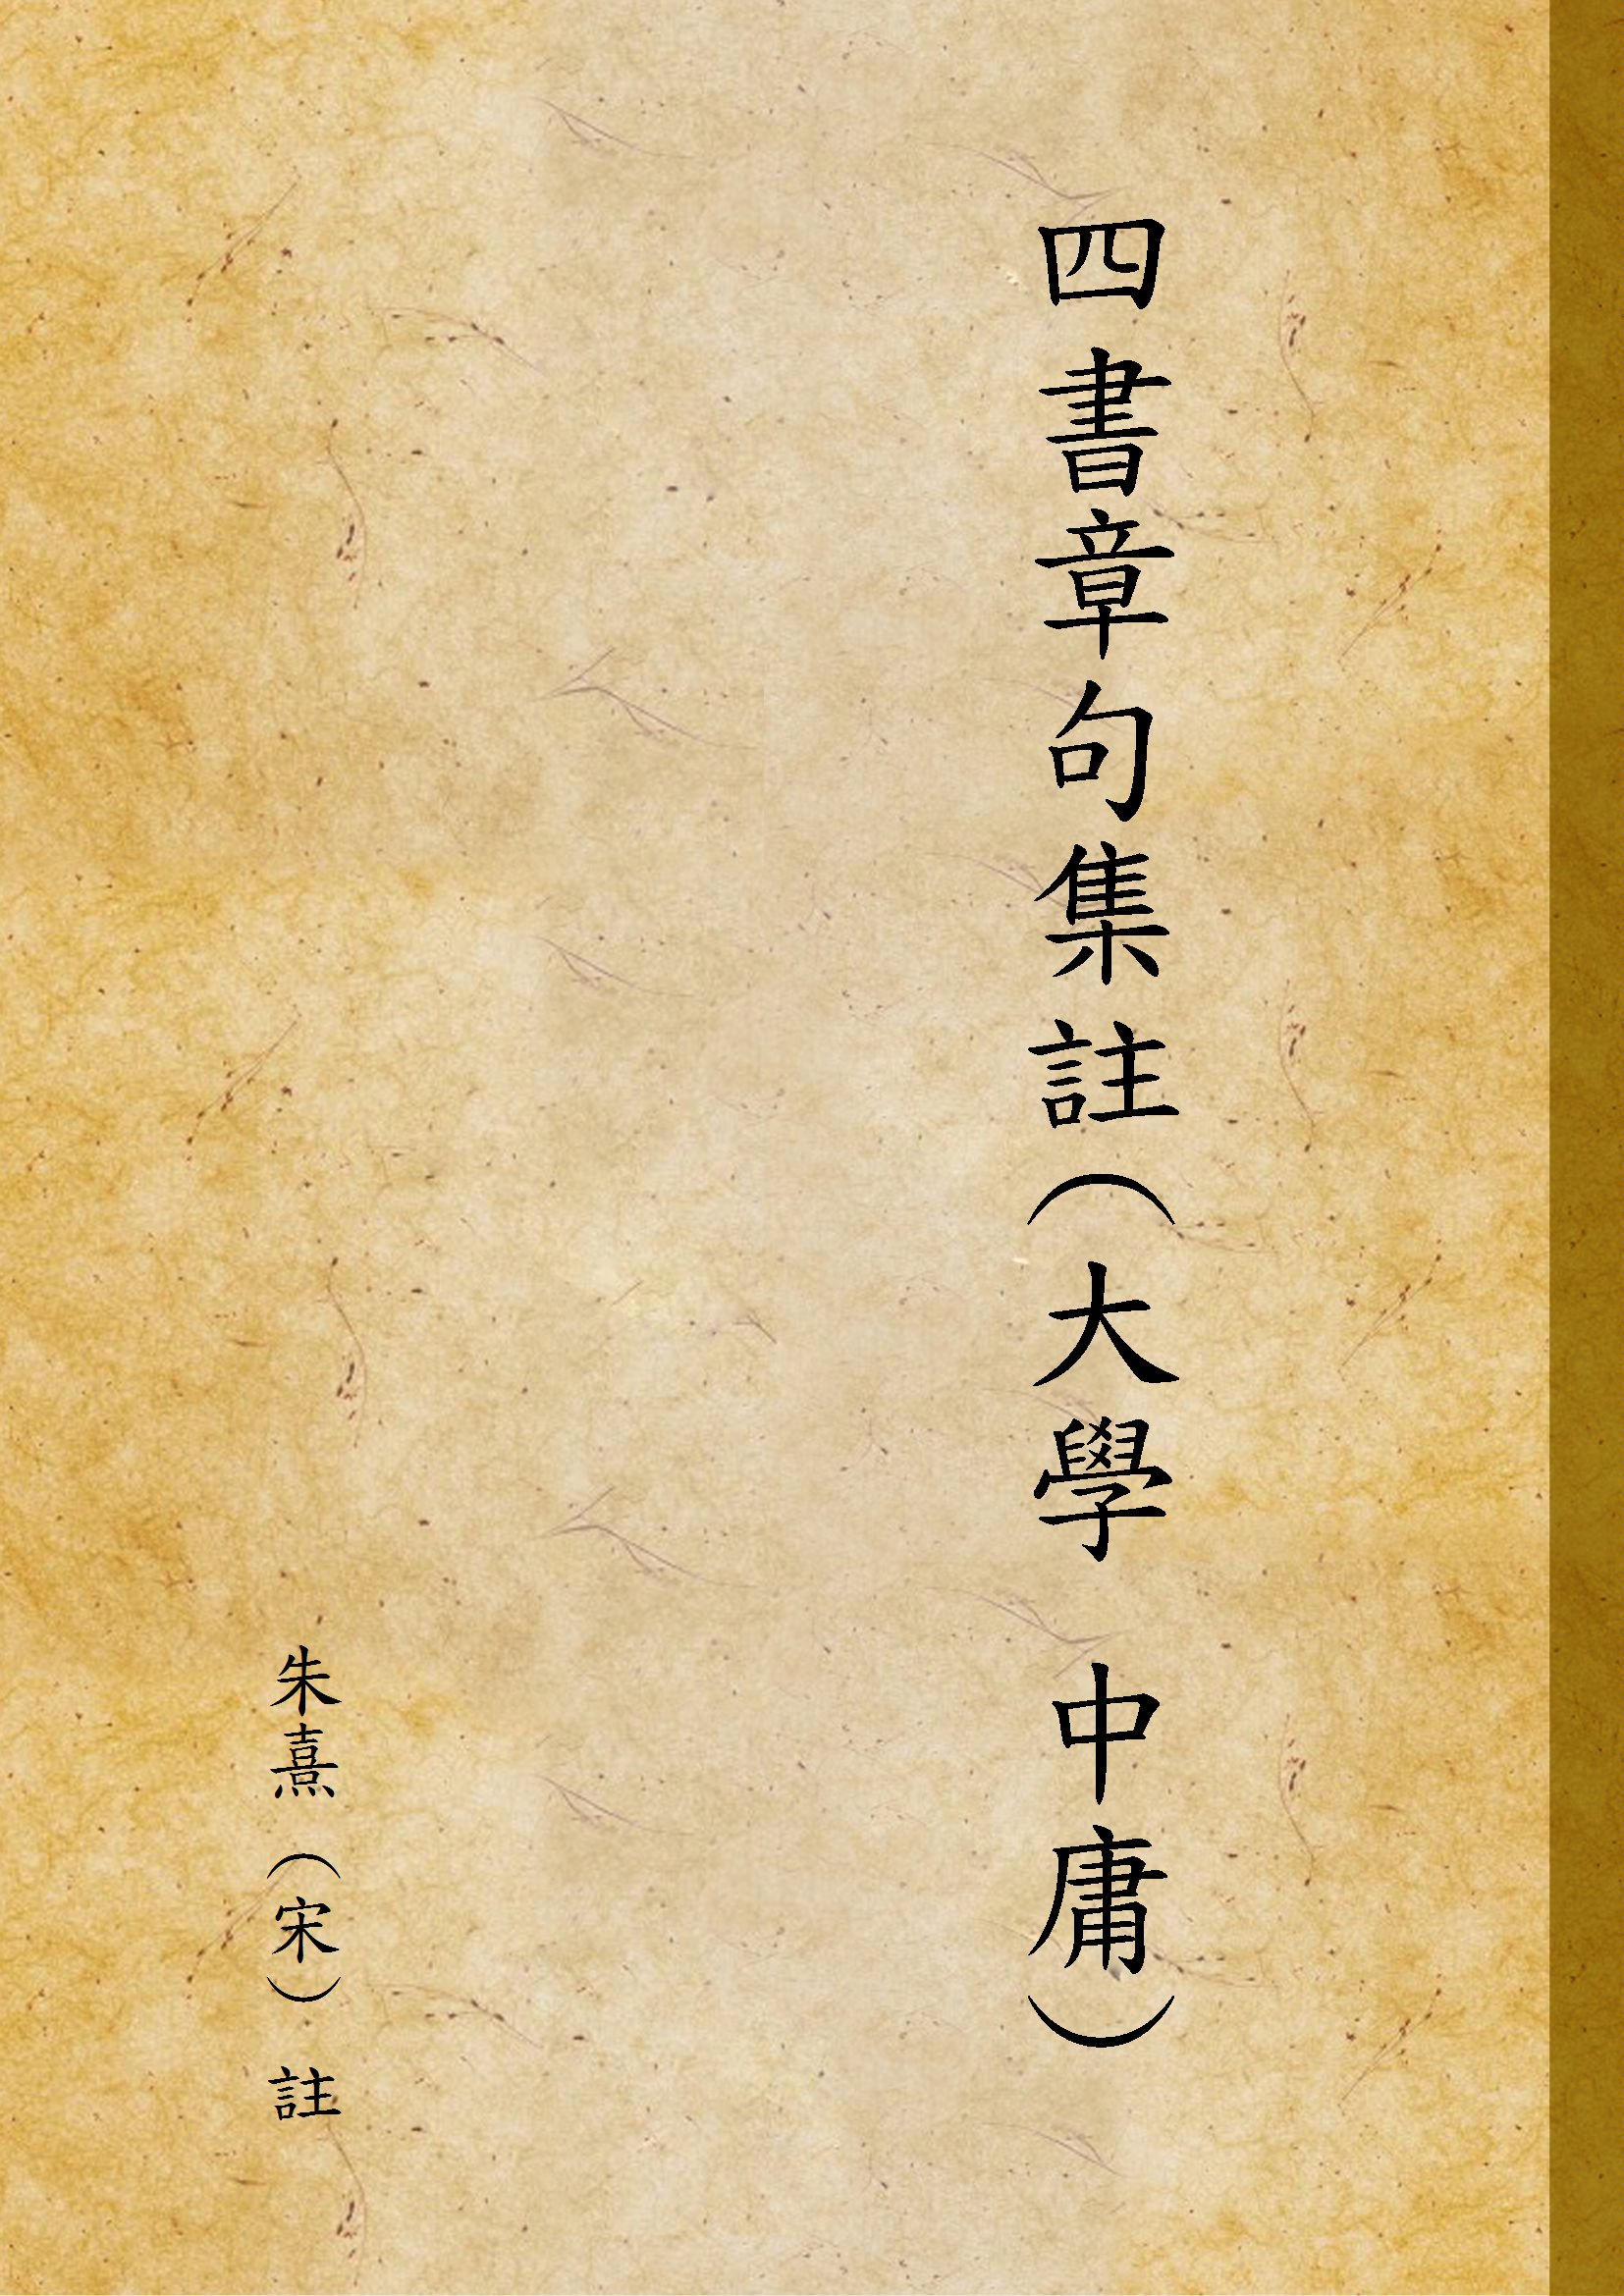 四書章句集註（大學 中庸）
朱熹（宋） 註